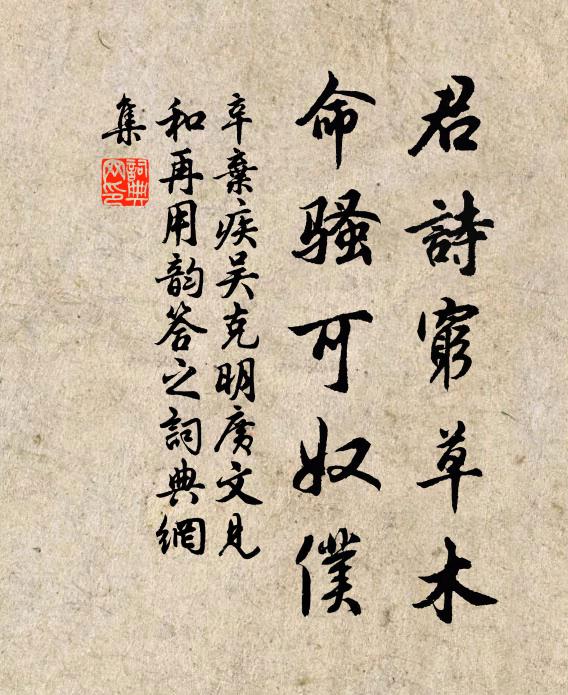 君詩窮草木
命騷可奴僕
辛棄疾吴克明廣文見
和再用韵答之詞典網
集
詞典
网印